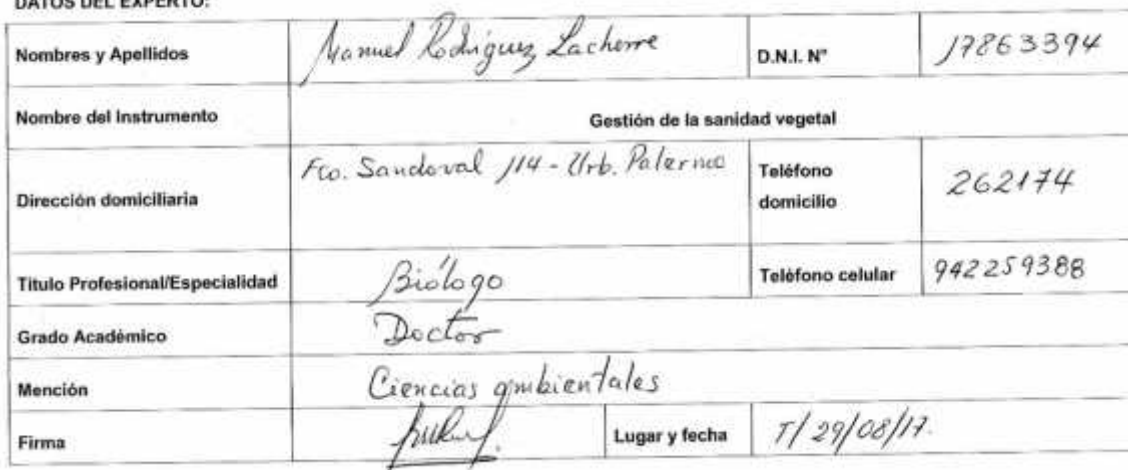 DATOS DEL EXPERTO:
Nombres y Apellidos Manuel Rodríguez Lacherre D.N.I. N° 17863394
Nombre del Instrumento Gestión de la sanidad vegetal
Dirección domiciliaria Fco. Sandoval 114 - Urb. Palermo Teléfono domicilio 262174
Título Profesional/Especialidad Biólogo Teléfono celular 942259388
Grado Académico Doctor
Mención Ciencias ambientales
Firma Lugar y fecha T/ 29/08/17.